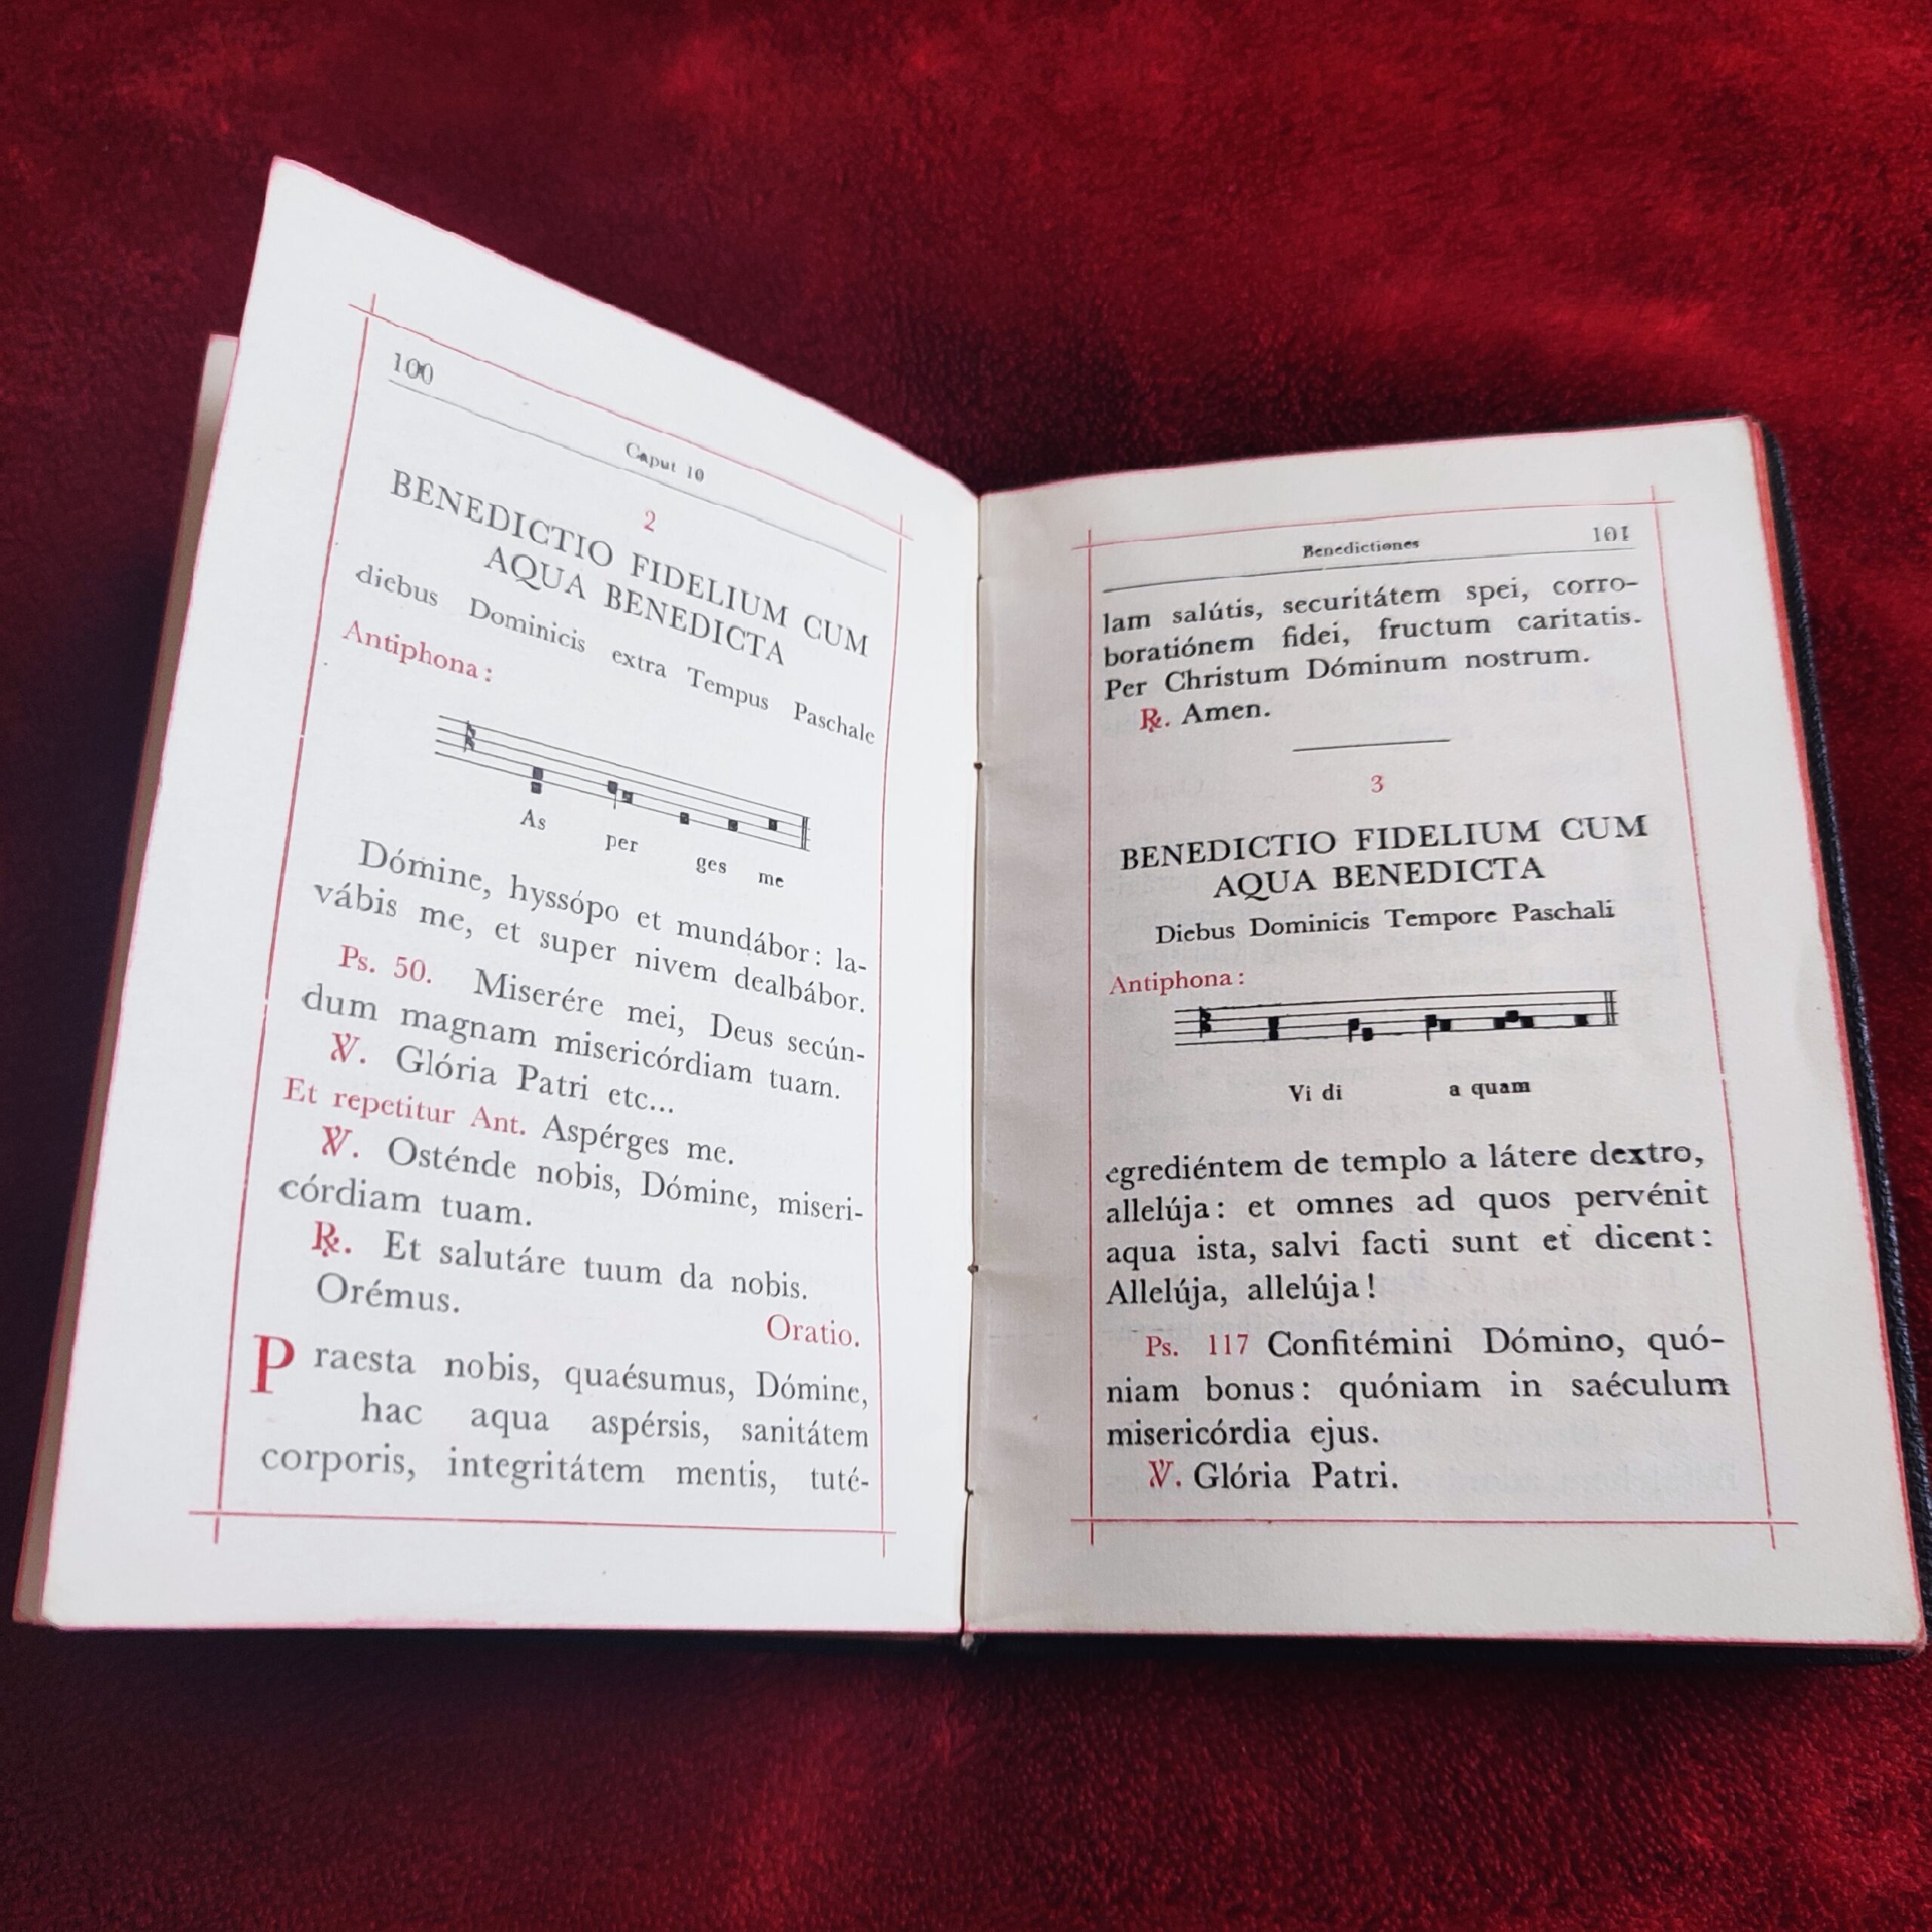 100
Caput 10
2
BENEDICTIO FIDELIUM CUM
AQUA BENEDICTA
diebus Dominicis extra Tempus Paschale
Antiphona :
As per ges me
Dómine, hyssópo et mundábor : la-
vábis me, et super nivem dealbábor.
Ps. 50. Miserére mei, Deus secún-
dum magnam misericórdiam tuam.
℣. Glória Patri etc...
Et repetitur Ant. Aspérges me.
℣. Osténde nobis, Dómine, miseri-
córdiam tuam.
℟. Et salutáre tuum da nobis.
Orémus.
Oratio.
Praesta nobis, quaésumus, Dómine,
hac aqua aspérsis, sanitátem
corporis, integritátem mentis, tuté-
Benedictiones
101
lam salútis, securitátem spei, corro-
boratiónem fidei, fructum caritatis.
Per Christum Dóminum nostrum.
℟. Amen.
3
BENEDICTIO FIDELIUM CUM
AQUA BENEDICTA
Diebus Dominicis Tempore Paschali
Antiphona :
Vi di a quam
egrediéntem de templo a látere dextro,
allelúja : et omnes ad quos pervénit
aqua ista, salvi facti sunt et dicent :
Allelúja, allelúja !
Ps. 117 Confitémini Dómino, quó-
niam bonus : quóniam in saéculum
misericórdia ejus.
℣. Glória Patri.